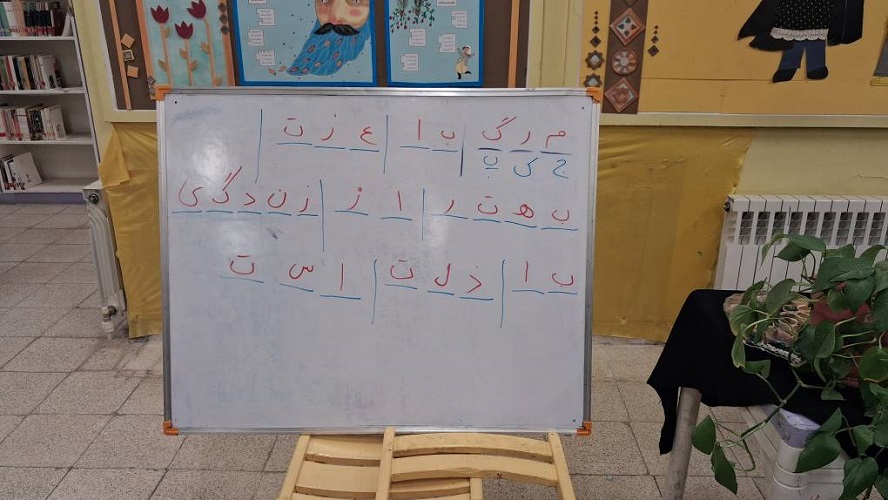 م ر گ | ب ا | ع ز ت |
ج ک پ
ب ه ت ر | ا ز | ز ن د گ ی
ب ا | ذ ل ت | ا س ت